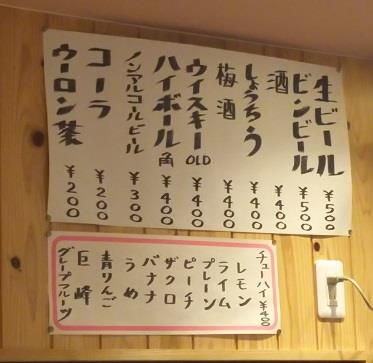 生ビール ¥500
ビンビール ¥500
酒 ¥400
しょうちう ¥400
梅酒 ¥400
ウイスキーOLD ¥400
ハイボール角 ¥400
ノンアルコールビール ¥300
コーラ ¥200
ウーロン茶 ¥200
チューハイ ¥400
レモン
ライム
プレーン
ピーチ
ザクロ
バナナ
うめ
青りんご
巨峰
グレープフルーツ